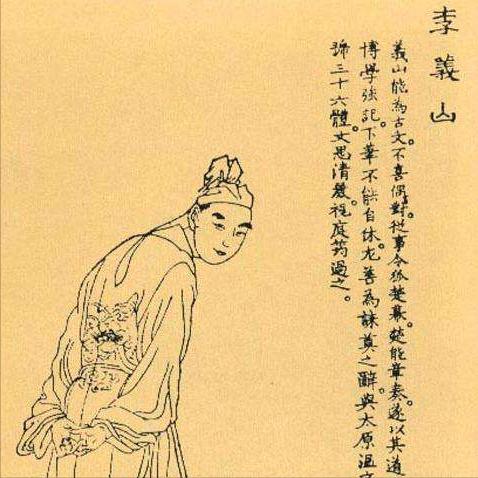 李義山
義山能為古文。不喜偶對。從事令狐楚幕。楚能章奏。遂以其道
博學強記。下筆不能自休。尤善為誄奠之辭。與太原溫
號三十六體。文思清麗。視庭筠過之。